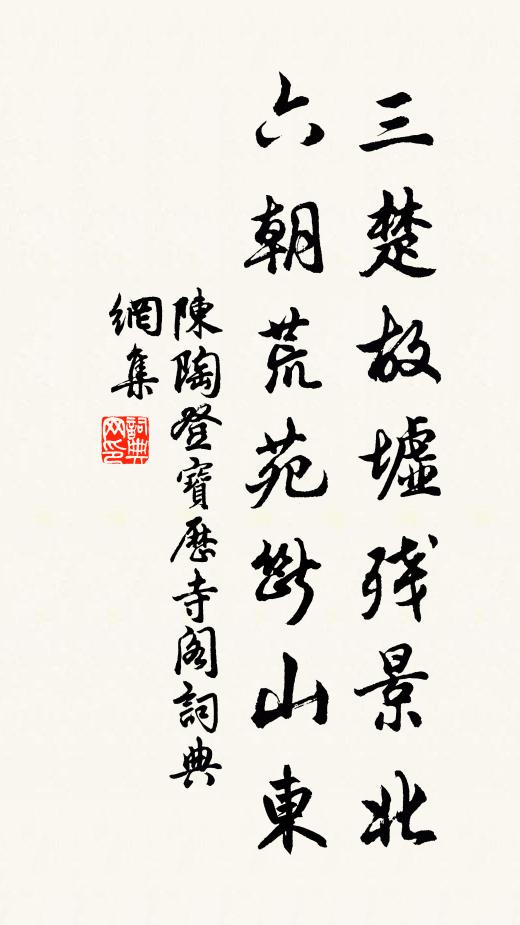 三楚故墟殘景北
六朝荒苑斷山東
陳陶登寶歷寺閣詞典
網集
詞典网印